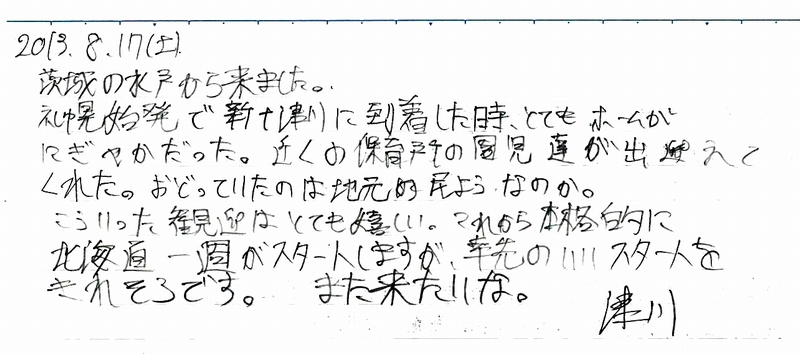 2013.8.17(土)
茨城の水戸から来ました。
札幌始発で新十津川に到着した時、とてもホームが
にぎやかだった。近くの保育所の園児達が出迎えて
くれた。おどっていたのは地元的民ようなのか。
こういった観迎はとても嬉しい。これから本格的に
北海道一週がスタートしますが、幸先のいいスタートを
きれそろです。 また来たいな。
津川